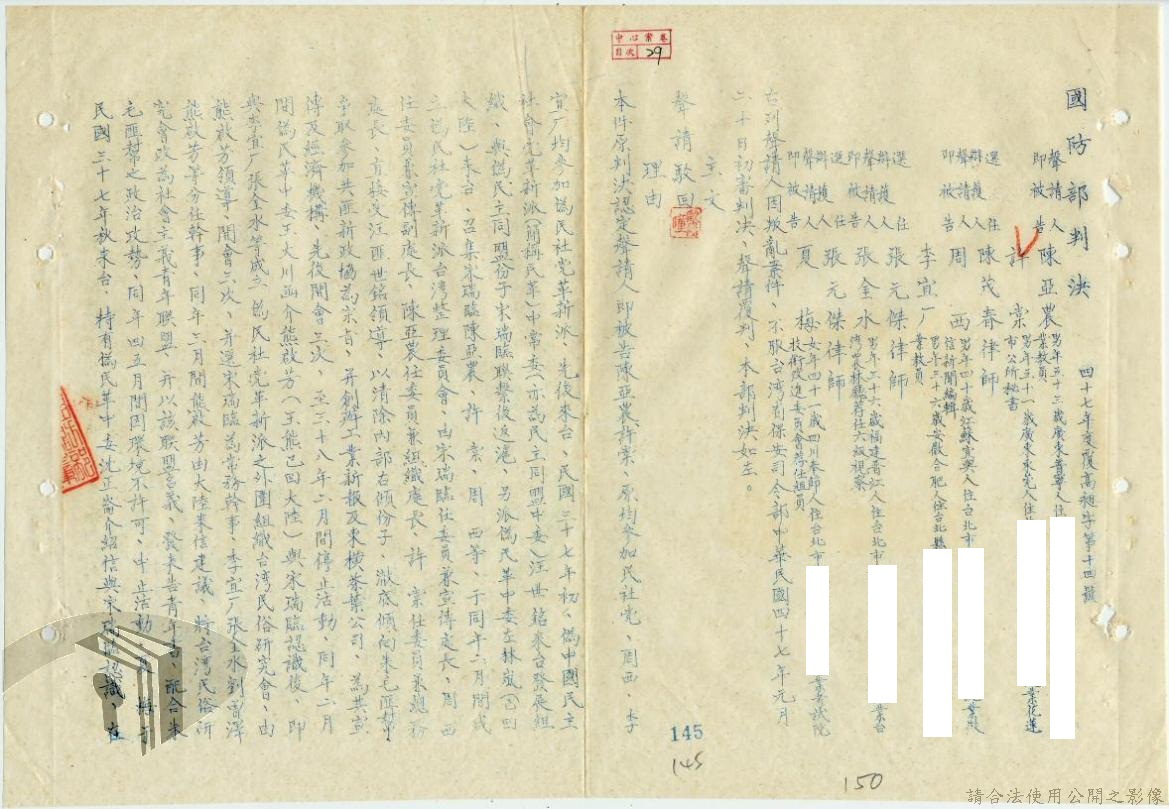 國防部判決
四十七年度覆高𥘉字第十四號
聲請人
即被告 陳亞農 男年五十三歲廣東普寧人住
業教員
許棠 男年五十一歲廣東東莞人住 業花蓮
市公所秘書
選任
辯護人 陳茂春律師
聲請人
即被告 周西 男年四十歲江蘇宜興人住台北市
信新聞編輯
李宜厂 男年三十六歲安徽合肥人住台北縣
業教員
選任
辯護人 張元傑律師
聲請人
即被告 張金水 男年三十六歲福建晉江人住台北市 業台
灣農林廳薦任六級視察
選任
辯護人 張元傑律師
聲請人
即被告 夏梅 女年四十一歲四川奉節人住台北市 業考試院
技術改進委員會薦任組員
右列聲請人因叛亂案件、不服台湾省保安司令部中華民國四十七年元月
二十日初審判決、聲請覆判、本部判決如左。
主文
聲請駁回
理由
本件原判決認定聲請人即被告陳亞農許棠、原均參加民社党、周西、李
宜厂均參加偽民社党革新派、先後來台、民國三十七年初、偽中國民主
社会党革新派(簡稱民革)中常委(亦為民主同盟中委)汪世銘來台發展組
織、與偽民主同盟份子宋瑞臨聯繫後返滬、另派偽民革中委左林嵐(已回
大陸)來台、召集宋瑞臨陳亞農、許棠、周西等、于同年二月間成
立偽民社党革新派台湾整理委員會、由宋瑞臨任委員兼宣傳處長、周西
任委員兼宣傳副處長、陳亞農任委員兼組織處長、許棠任委員兼總務
處長、直接受汪匪世銘領導、以清除內部右傾份子、澈底傾向朱毛匪幫、
爭取參加共匪新政協為宗旨、并創辦工業新報及東横茶葉公司、為其宣
傳及經濟機構、先後開會三次、至三十八年二月間停止活動、同年二月
間偽民革中委王大川函介熊啟芳(王熊已回大陸)與宋瑞臨認識後、即
與李宜厂張金水等成立偽民社党革新派之外圍組織台湾民俗研究會、由
熊啟芳領導、開會二次、并選宋瑞臨為常務幹事、李宜厂張金水劉曾澤
熊啟芳等分任幹事、同年三月間熊啟芳由大陸來信建議、將台湾民俗研
究會改為社會主義青年联盟、并以該联盟名義、發表告青年書、配合朱
毛匪幫之政治攻勢、同年四五月間因環境不許可、中止活動、夏梅于
民國三十七年秋來台、持有偽民革中委沈正崙介紹信與宋瑞臨認識、在
中心案卷
目次 29
145
145
150
請合法使用公開之影像